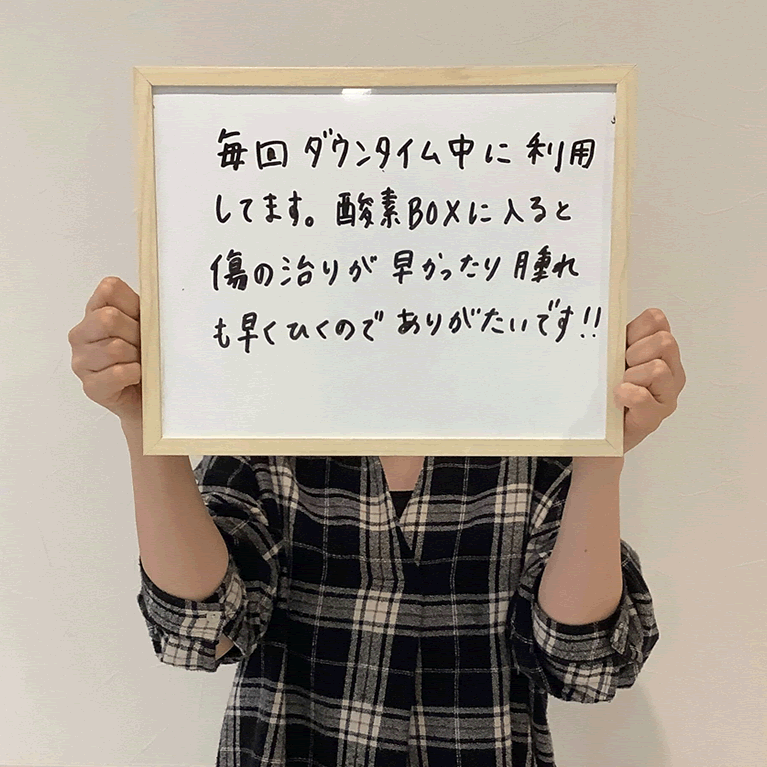 毎回ダウンタイム中に利用
してます。酸素BOXに入ると
傷の治りが早かったり腫れ
も早くひくのでありがたいです!!